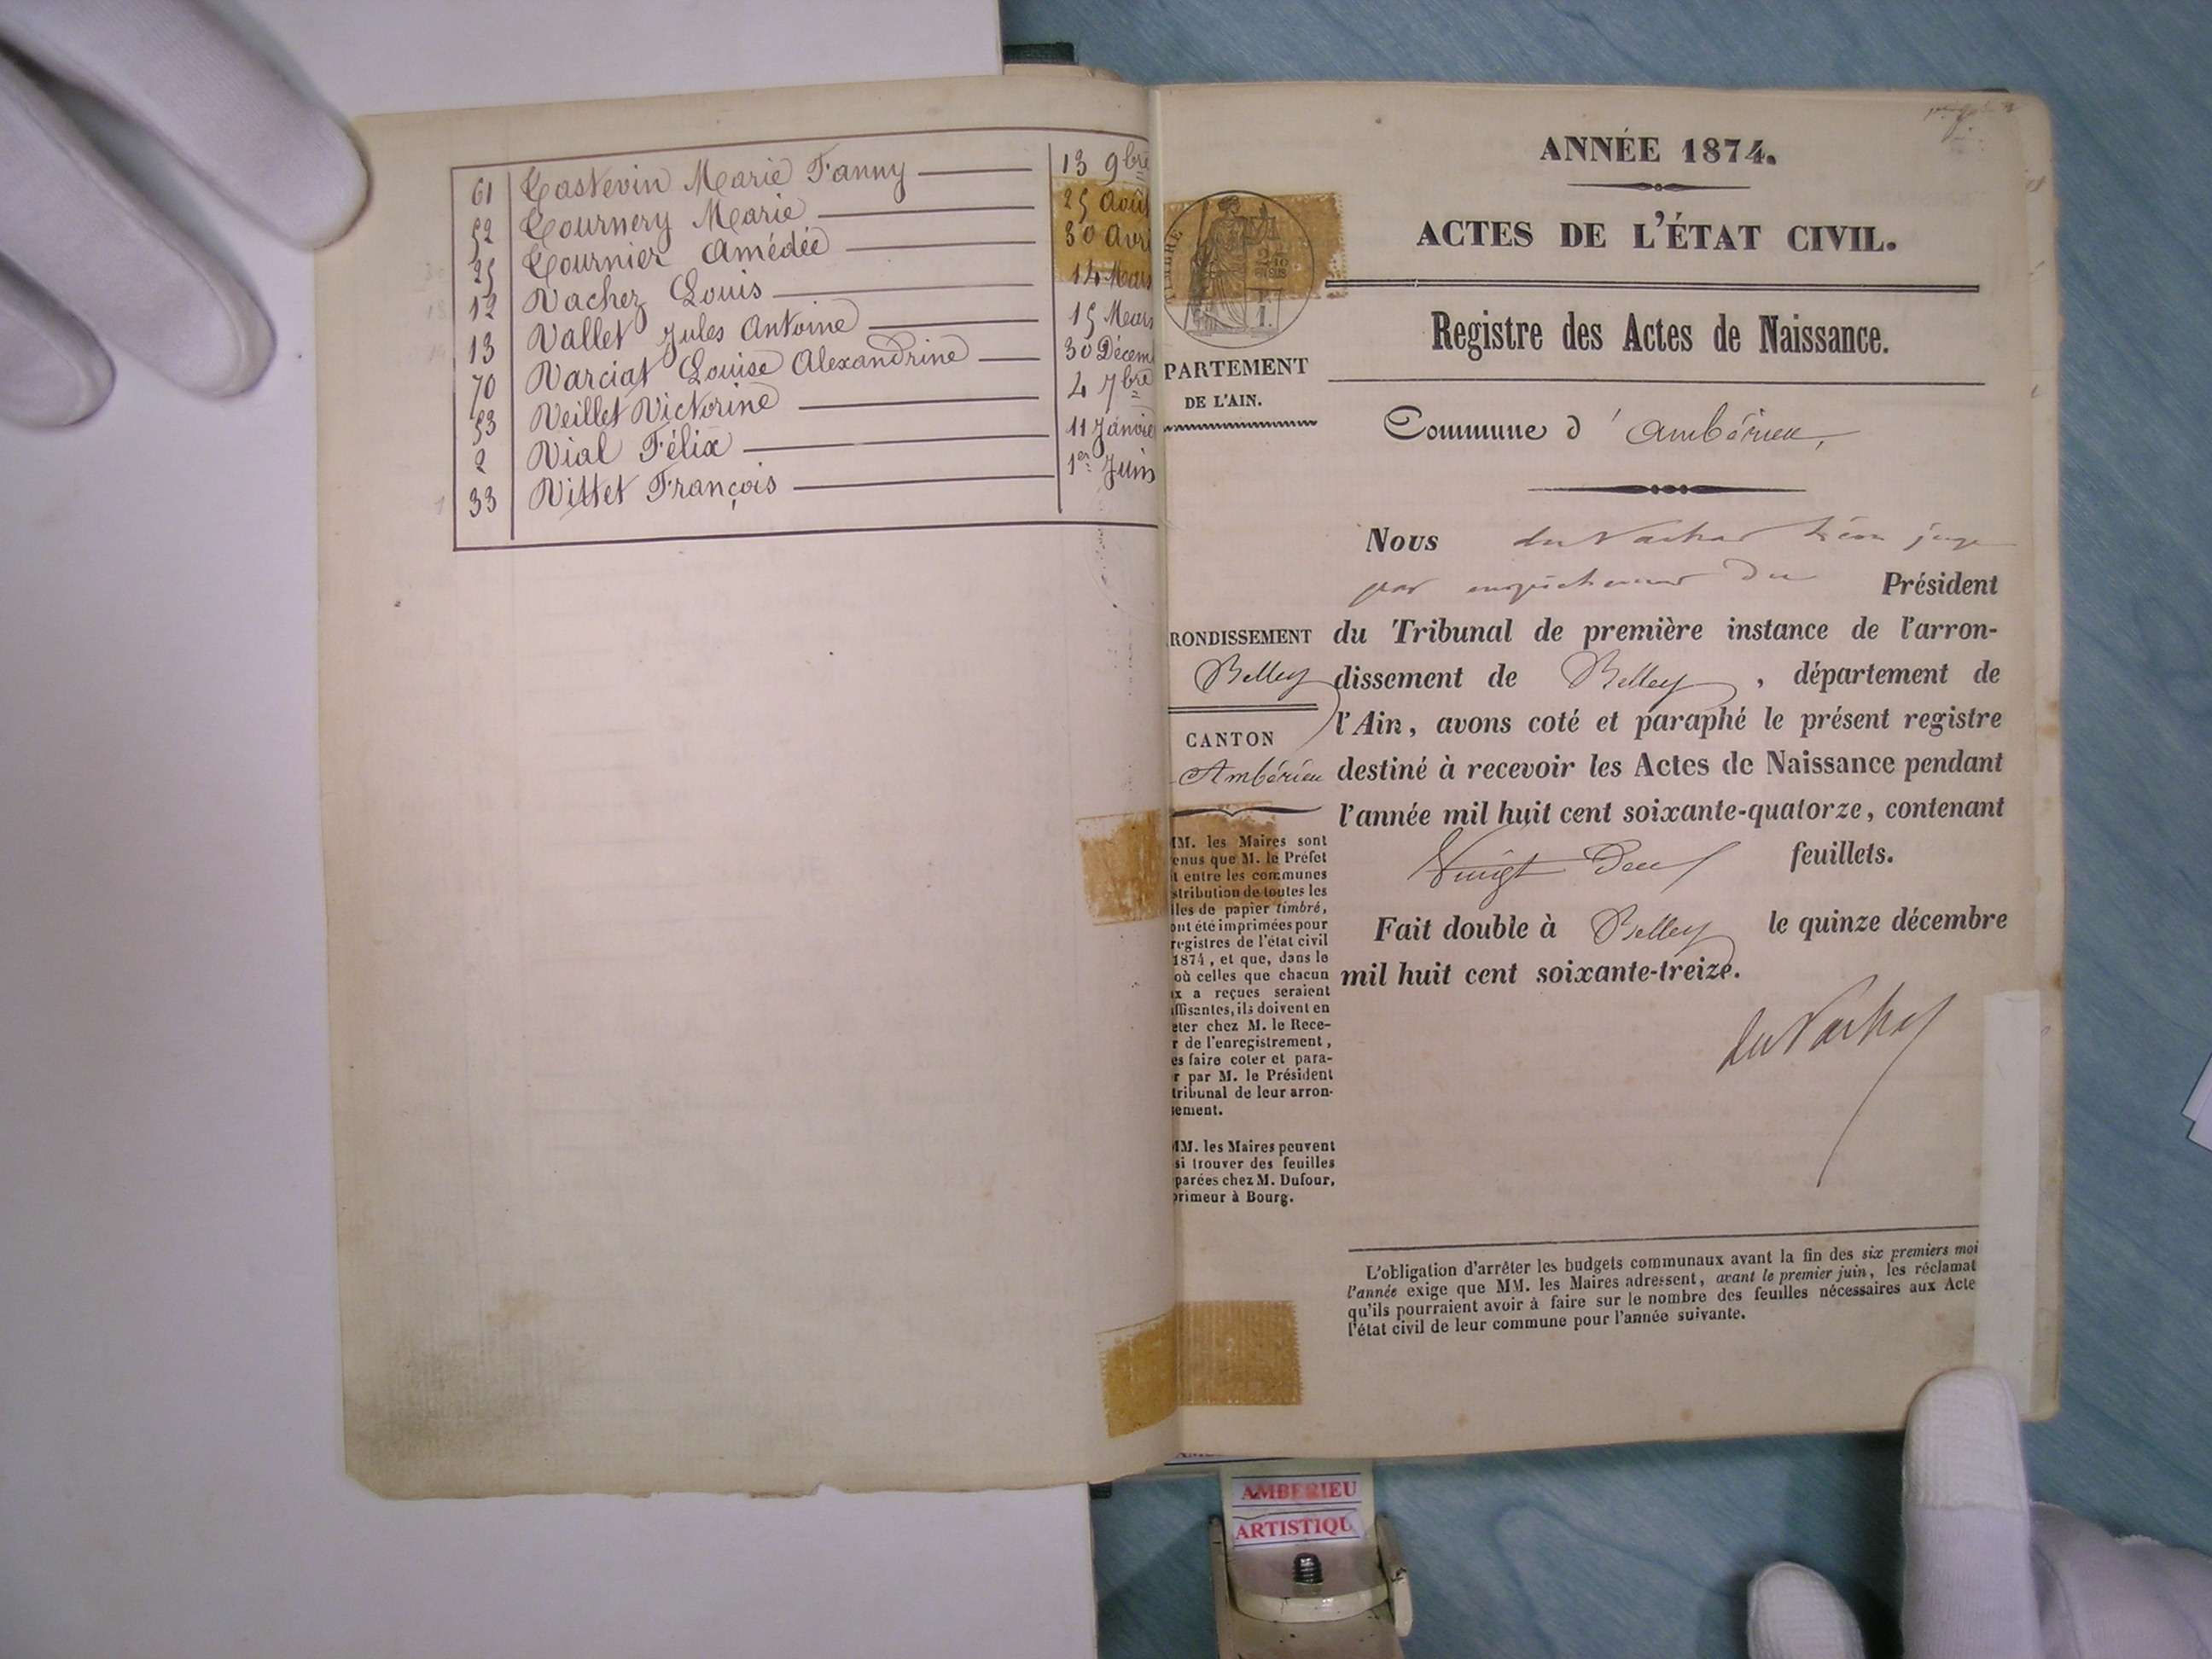 61 Tastevin Marie Fanny 13 9bre
52 Tournery Marie 25 Août
25 Tournier Amédée 30 Avri
12 Vachez Louis 14 Mars
13 Vallet Jules Antoine 15 Mars
70 Varciat Louise Alexandrine 30 Décem
53 Veillet Victorine 4 7bre
2 Vial Félix 11 Janvie
33 Vittet François 1er Juin
ANNÉE 1874.
ACTES DE L'ÉTAT CIVIL.
Registre des Actes de Naissance.
Commune d'Ambérieu,
TIMBRE
2/10
EN SUS
1.
PARTEMENT
DE L'AIN.
RONDISSEMENT
Belley
CANTON
Ambérieu
MM. les Maires sont
enus que M. le Préfet
t entre les communes
stribution de toutes les
lles de papier timbré,
ont été imprimées pour
registres de l'état civil
1874, et que, dans le
où celles que chacun
x a reçues seraient
ffisantes, ils doivent en
eter chez M. le Rece-
r de l'enregistrement,
es faire coter et para-
r par M. le Président
tribunal de leur arron-
sement.
MM. les Maires peuvent
si trouver des feuilles
parées chez M. Dufour,
primeur à Bourg.
Nous juge
par empêchement du Président
du Tribunal de première instance de l'arron-
dissement de Belley, département de
l'Ain, avons coté et paraphé le présent registre
destiné à recevoir les Actes de Naissance pendant
l'année mil huit cent soixante-quatorze, contenant
Vingt Deux feuillets.
Fait double à Belley le quinze décembre
mil huit cent soixante-treize.
L'obligation d'arrêter les budgets communaux avant la fin des six premiers moi
l'année exige que MM. les Maires adressent, avant le premier juin, les réclamat
qu'ils pourraient avoir à faire sur le nombre des feuilles nécessaires aux Acte
l'état civil de leur commune pour l'année suivante.
AMBERIEU
ARTISTIQU